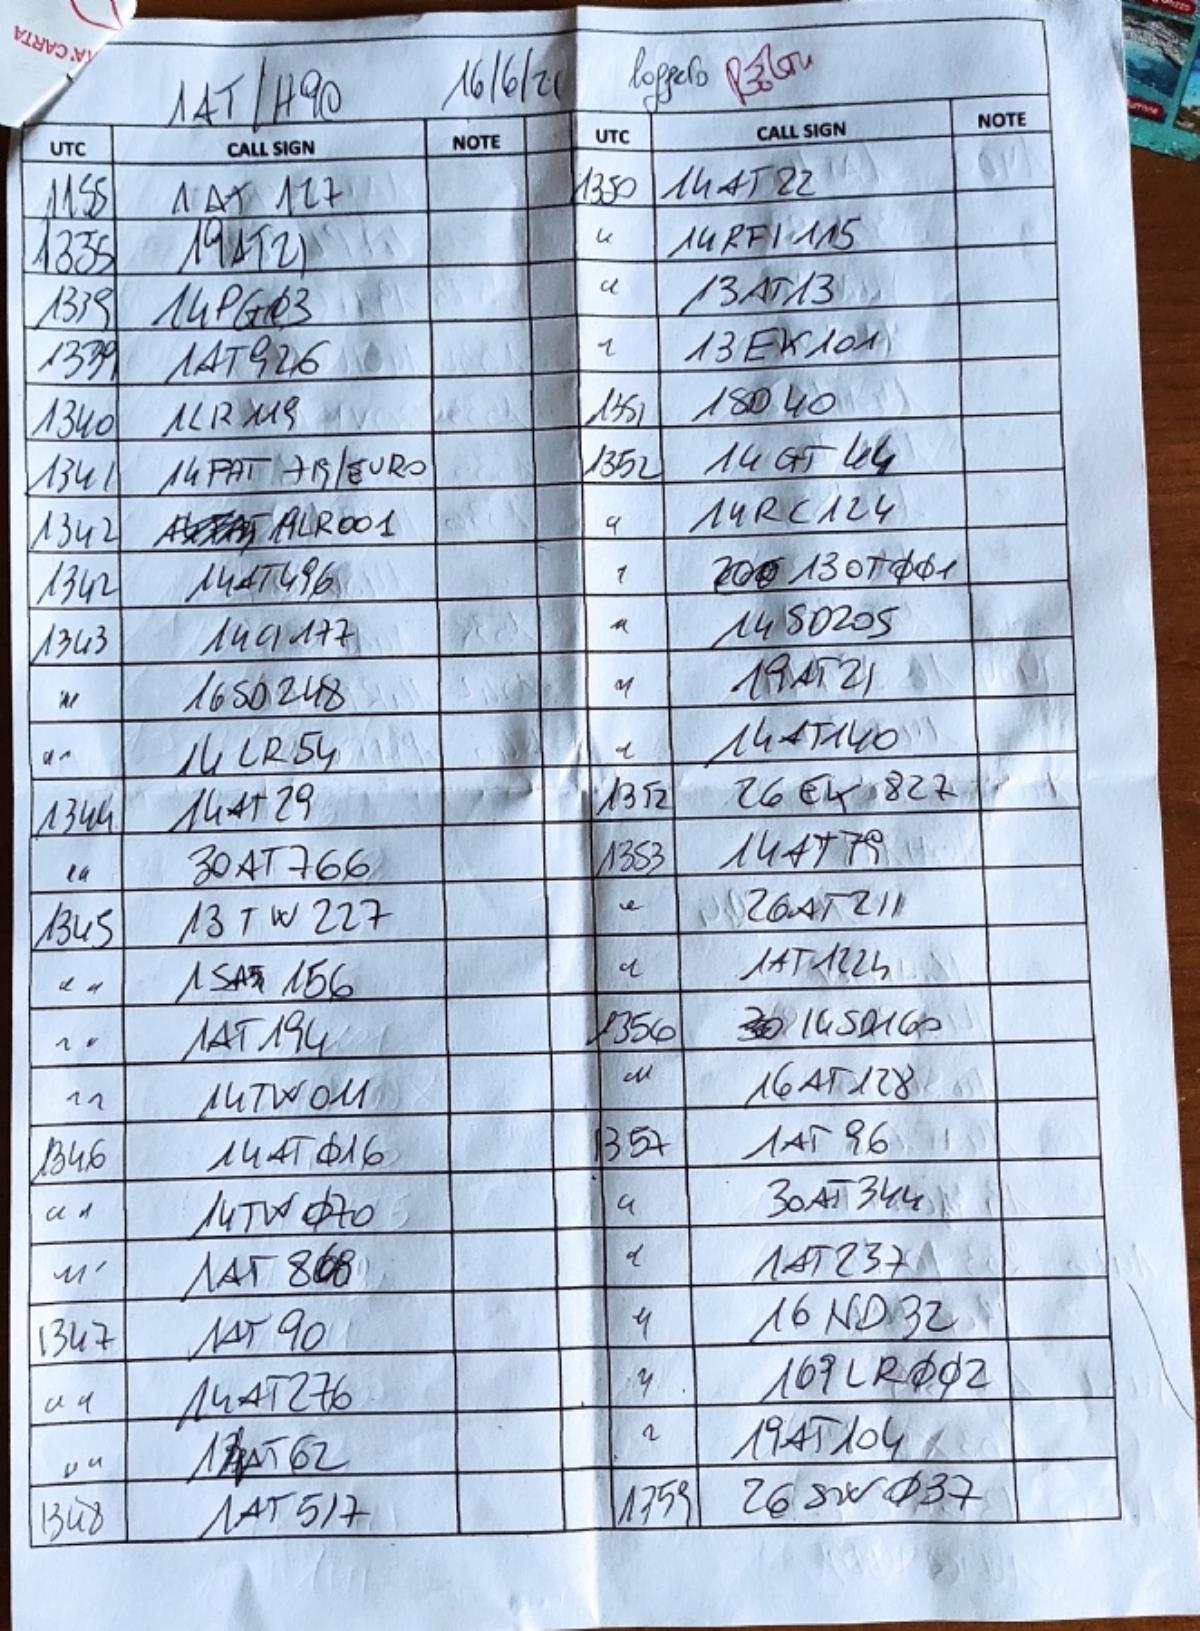 IA' CARTA
1AT/H90 16/6/21 loggato
UTC CALL SIGN NOTE UTC CALL SIGN NOTE
1155 1AT 127
1335 19AT21
1339 14PGØ3
1339 1AT926
1340 1LR119
1341 14FAT 719/EURO
1342 19LR001
1342 14AT496
1343 14CI177
" 16SD248
" " 14LR54
1344 14AT29
" " 30AT766
1345 13TW227
" " 156
" " 1AT194
" " 14TW011
1346 14ATØ16
" " 14TWØ70
" " 1AT868
1347 1AT90
" " 14AT276
" " AT62
1348 1AT517
1350 14AT22
" 14RFI115
" 13AT13
" 13EK101
1351 1SD40
1352 14GT44
" 14RC124
" 13OTØØ1
" 14SD205
" 19AT21
" 14AT140
1352 26EK827
1353 14AT79
" 26AT211
" 1AT1224
1356 14SD160
" 16AT128
1357 1AT96
" 30AT344
" 1AT237
" 16ND32
" 169LRØØ2
" 19AT104
1359 26SWØ37